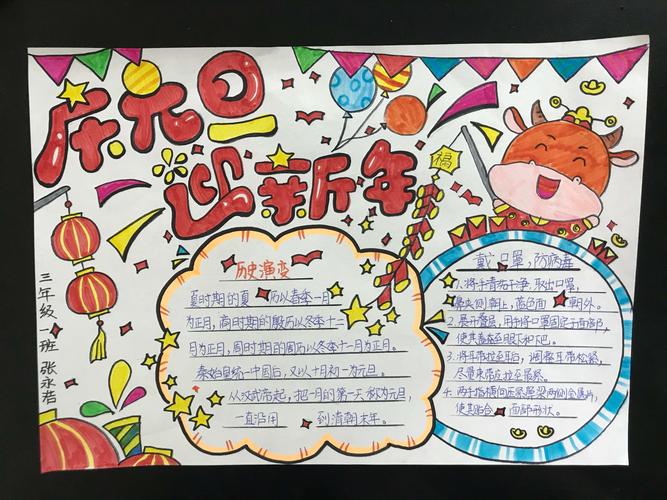 庆元旦
迎新年
福
三年级一班 张永浩
历史演变
夏时期的夏 历以春季一月
为正月,商时期的殷历以冬季十二
月为正月,周时期的周历以冬季十一月为正月。
秦始皇统一中国后,又以十月初一为元旦。
从汉武帝起,把一月的第一天称为元旦,
一直沿用 到清朝末年。
戴口罩,防病毒
1.将手清洗干净,取出口罩,
鼻夹侧朝上,蓝色面 朝外。
2.展开叠层,用手将口罩固定于面部,
使其覆盖至眼下和下巴。
3.将耳带拉至耳后,调整耳带松紧,
尽量束带应拉至最紧。
4.两手指横向压紧鼻梁两侧金属片,
使其贴合 面部形状。